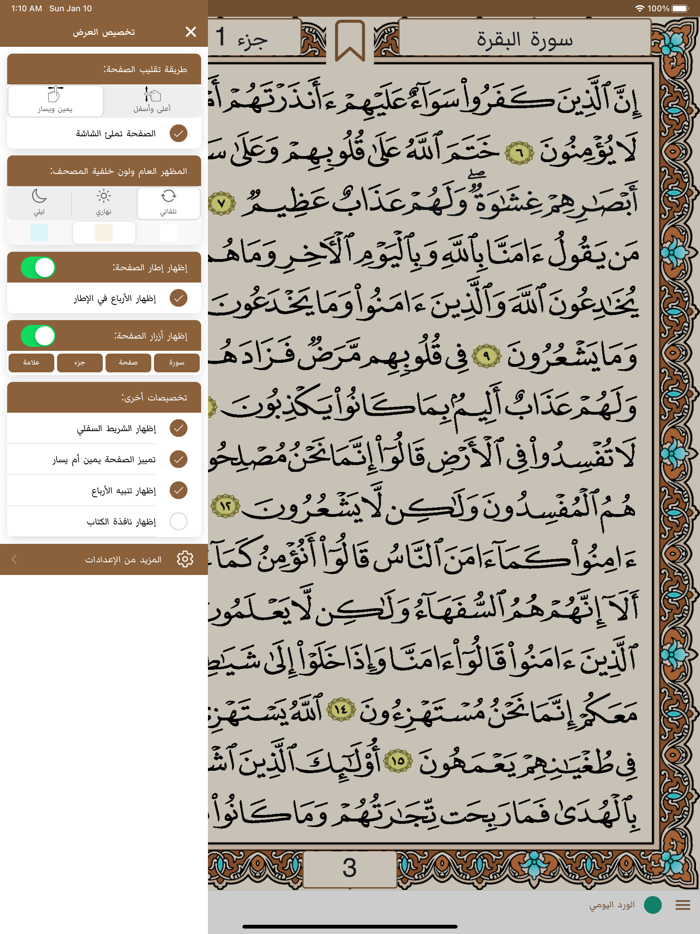 1:10 AM Sun Jan 10
100%
تخصيص العرض
طريقة تقليب الصفحة:
أعلى وأسفل
يمين ويسار
الصفحة تملئ الشاشة
المظهر العام ولون خلفية المصحف:
تلقائي
نهاري
ليلي
إظهار إطار الصفحة:
إظهار الأرباع في الإطار
إظهار أزرار الصفحة:
سورة
صفحة
جزء
علامة
تخصيصات أخرى:
إظهار الشريط السفلي
تمييز الصفحة يمين أم يسار
إظهار تنبيه الأرباع
إظهار نافذة الكتاب
المزيد من الإعدادات
سورة البقرة
جزء 1
إِنَّ ٱلَّذِينَ كَفَرُوا۟ سَوَآءٌ عَلَيْهِمْ ءَأَنذَرْتَهُمْ أَمْ
لَا يُؤْمِنُونَ ٦ خَتَمَ ٱللَّهُ عَلَىٰ قُلُوبِهِمْ وَعَلَىٰ
أَبْصَـٰرِهِمْ غِشَـٰوَةٌ ۖ وَلَهُمْ عَذَابٌ عَظِيمٌ ٧
مَن يَقُولُ ءَامَنَّا بِٱللَّهِ وَبِٱلْيَوْمِ ٱلْـَٔاخِرِ وَمَا هُم
يُخَـٰدِعُونَ ٱللَّهَ وَٱلَّذِينَ ءَامَنُوا۟ وَمَا يَخْدَعُونَ
وَمَا يَشْعُرُونَ ٩ فِى قُلُوبِهِم مَّرَضٌ فَزَادَهُ
وَلَهُمْ عَذَابٌ أَلِيمٌۢ بِمَا كَانُوا۟ يَكْذِبُونَ
لَا تُفْسِدُوا۟ فِى ٱلْأَرْضِ قَالُوٓا۟ إِنَّمَا نَحْنُ مُصْلِحُو
هُمُ ٱلْمُفْسِدُونَ وَلَـٰكِن لَّا يَشْعُرُونَ ١٢
ءَامِنُوا۟ كَمَآ ءَامَنَ ٱلنَّاسُ قَالُوٓا۟ أَنُؤْمِنُ كَمَآ
أَلَآ إِنَّهُمْ هُمُ ٱلسُّفَهَآءُ وَلَـٰكِن لَّا يَعْلَمُو
ٱلَّذِينَ ءَامَنُوا۟ قَالُوٓا۟ ءَامَنَّا وَإِذَا خَلَوْا۟ إِلَىٰ شَيَـٰطِ
مَعَكُمْ إِنَّمَا نَحْنُ مُسْتَهْزِءُونَ ١٤ ٱللَّهُ يَسْتَهْزِ
فِى طُغْيَـٰنِهِمْ يَعْمَهُونَ ١٥ أُو۟لَـٰٓئِكَ ٱلَّذِينَ ٱشْ
بِٱلْهُدَىٰ فَمَا رَبِحَت تِّجَـٰرَتُهُمْ وَمَا كَانُوا۟
3
الورد اليومي